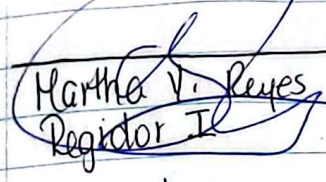 Martha V. Reyes
Regidor I